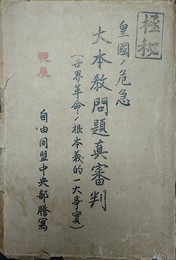 極秘
皇國ノ危急
大本教問題真審判
(世界革命ノ根本義的一大事實)
自由同盟中央部謄寫